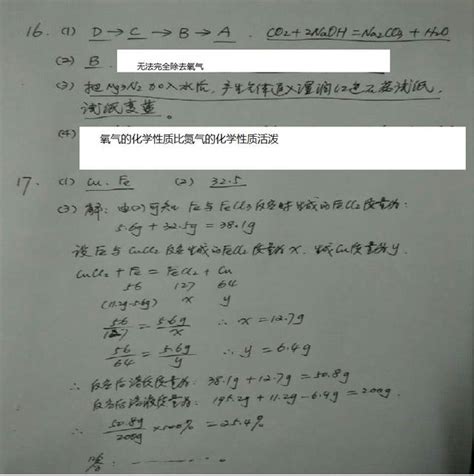 16. (1) D → C → B → A . CO2+2NaOH=Na2CO3+H2O
(2) B. 无法完全除去氧气
(3) 把Mg3N2加入水后,产生气体通入湿润红色石蕊试纸,
试纸变蓝。
(4) 氧气的化学性质比氮气的化学性质活泼
17. (1) Cu、Fe (2) 32.5
(3) 解: 由(2)可知 Fe与FeCl3反应时生成的FeCl2质量为:
5.6g + 32.5g = 38.1g
设Fe与CuCl2反应生成的FeCl2质量为x,生成Cu质量为y.
CuCl2 + Fe = FeCl2 + Cu
56 127 64
(11.2g-5.6g) x y
56/127 = 5.6g/x ∴ x = 12.7g
56/64 = 5.6g/y ∴ y = 6.4g
∴ 反应后溶质质量为: 38.1g + 12.7g = 50.8g
反应后溶液质量为: 195.2g + 11.2g - 6.4g = 200g
∴ 50.8g/200g ×100% = 25.4%
答: ......